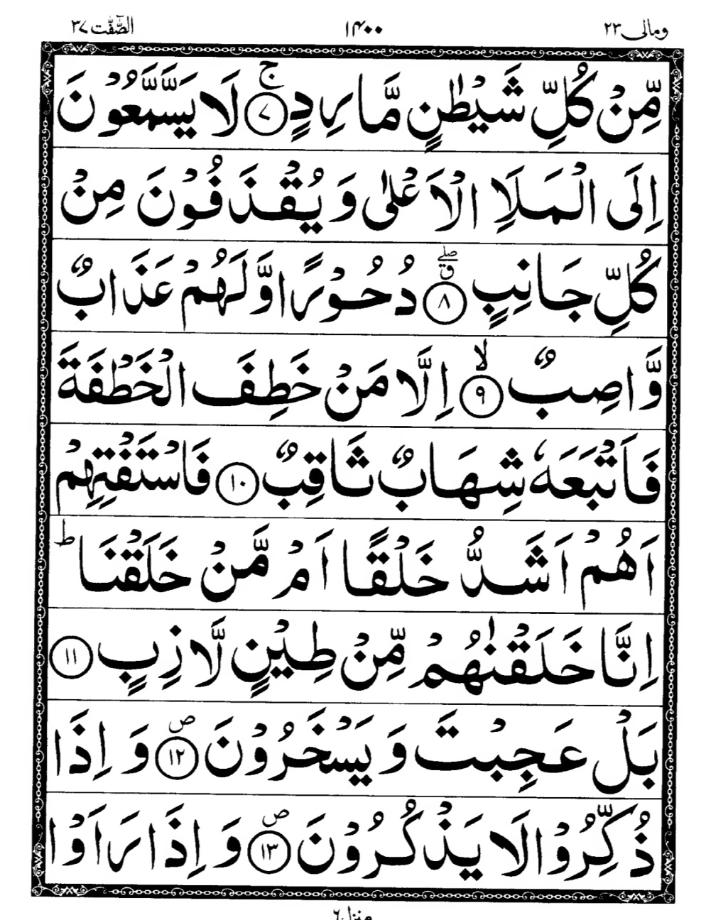 ومالی ٢٣ ١٤٠٠ الصّٰٓفّٰت ٣٧
مِّنْ كُلِّ شَيْطٰنٍ مَّارِدٍ ۚ‏﴿٧﴾ لَا يَسَّمَّعُوْنَ
اِلَى الْمَلَاِ الْاَعْلٰى وَ يُقْذَفُوْنَ مِنْ
كُلِّ جَانِبٍ ۖۗ‏﴿٨﴾ دُحُوْرًا وَّلَهُمْ عَذَابٌ
وَّاصِبٌ ۙ‏﴿٩﴾ اِلَّا مَنْ خَطِفَ الْخَطْفَةَ
فَاَتْبَعَهٗ شِهَابٌ ثَاقِبٌ ‏﴿١٠﴾ فَاسْتَفْتِهِمْ
اَهُمْ اَشَدُّ خَلْقًا اَمْ مَّنْ خَلَقْنَا ؕ
اِنَّا خَلَقْنٰهُمْ مِّنْ طِيْنٍ لَّازِبٍ ‏﴿١١﴾
بَلْ عَجِبْتَ وَ يَسْخَرُوْنَ ۪‏﴿١٢﴾ وَ اِذَا
ذُكِّرُوْا لَا يَذْكُرُوْنَ ۪‏﴿١٣﴾ وَ اِذَا رَاَوْا
منزل ٦